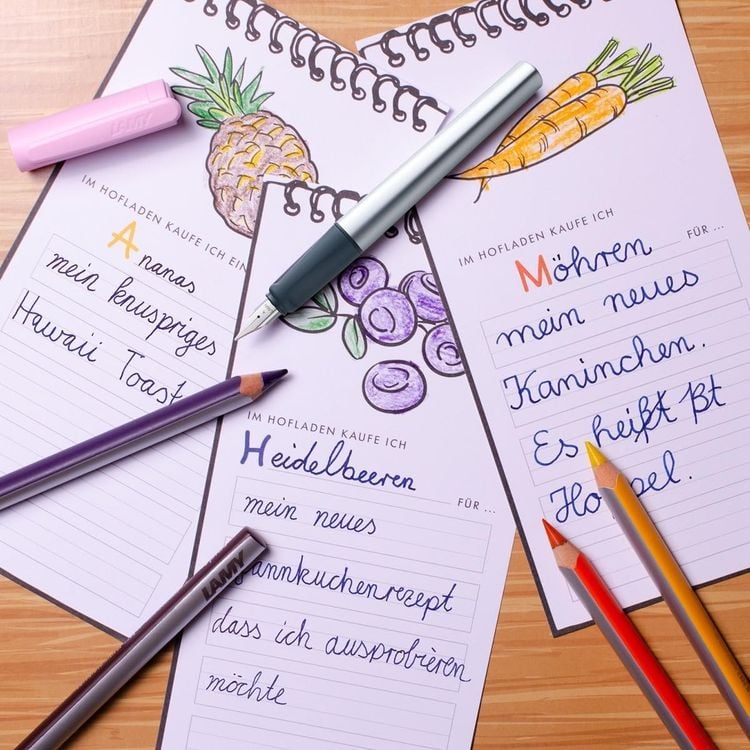 LAMY
IM HOFLADEN KAUFE ICH EIN
Ananas
mein knuspriges
Hawaii Toast
IM HOFLADEN KAUFE ICH
Heidelbeeren
FÜR ...
mein neues
annkuchenrezept
dass ich ausprobieren
möchte
LAMY
IM HOFLADEN KAUFE ICH
Möhren FÜR ...
mein neues
Kaninchen.
Es heißt
Hoppel.